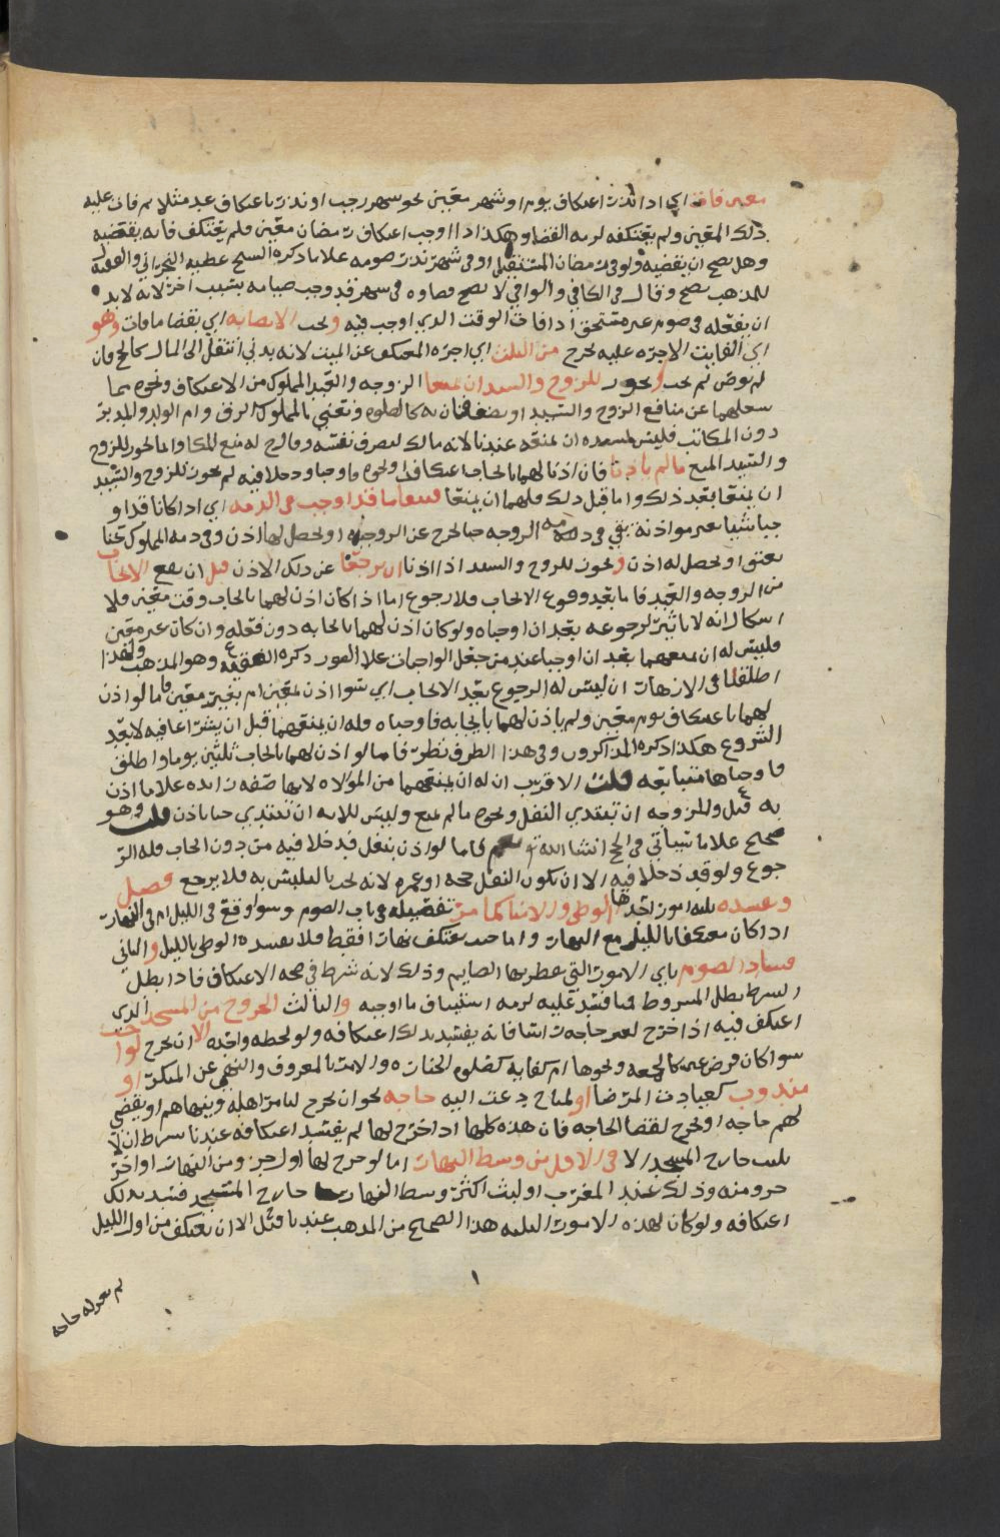 معين فات اي اذا نذر اعتكاف يوم او شهر معين نحو شهر رجب او نذر باعتكاف عيد مثلا ثم فات عليه
ذلك المعين ولم يعتكفه لزمه القضا وهكذا اذا اوجب اعتكاف رمضان معين فلم يعتكف فانه يقضيه
وهل يصح ان يقضيه ولو في رمضان المستقبل او في شهر نذر صومه علا ما ذكره الشيخ عطيه النجراني
للمذهب يصح وقال في الكافي والوافي لا يصح قضاوه في شهر قد وجب صيامه بسبب اخر لانه لابد
ان يفعله في صوم غير مستحق اذا فات الوقت الذي اوجب فيه ويجب الايصا به اي بقضا ما فات وهو
اي الفايت الاجره عليه يخرج من الثلث اي اجره المعتكف عن الميت لانه بدني انتقل الى المال كالحج فان
لم يوص لم يجب ويجوز للزوج والسيد ان يمنعا الزوجه والعبد المملوك من الاعتكاف ونحوه مما
يشغلهما عن منافع الزوج والسيد او يضعفان به كالصلوه ونعني بالمملوك الرق وام الولد والمدبر
دون المكاتب فليس لسيده ان يمنعه عندنا لانه مالك لتصرف نفسه
والسيد المنع ما لم ياذنا فان اذنا لهما بايجاب اعتكاف او نحوه فاوجبا ودخلا فيه لم يجوز للزوج والسيد
ان يمنعا بعد ذلك واما قبل ذلك فلهما ان يمنعا فيبقا ما قد اوجب في الذمه اي اذا كانا قد او
جبا شيا غير مواذنه بقي في ذمه الزوجه حتا تخرج عن الزوجيه او يحصل لها اذن وفي ذمه المملوك حتا
يعتق او يحصل له اذن ويجوز للزوج والسيد اذا اذنا ان يرجعا عن ذلك الاذن قبل ان يقع الايجاب
من الزوجه والعبد فاما بعد وقوع الايجاب فلا رجوع اما اذا كان اذن لهما بايجاب وقت معين فلا
اشكال انه لا تاثير لرجوعه بعد ان اوجباه ولو كان اذن لهما بايجابه دون فعله وان كان غير معين
فليس له ان يمنعهما بعد ان اوجبا عند من جعل الواجبات علا الفور ذكره الفقيه ع وهو المذهب ولهذا
اطلقنا في الازهار ان ليس له الرجوع بعد الايجاب اي سوا اذن بمعين ام بغير معين فاما لو اذن
لهما باعتكاف يوم معين ولم ياذن لهما بايجابه فاوجباه فله ان يمنعهما قبل ان يشرعا فيه لا بعد
الشروع هكذا ذكره المذاكرون وفي هذا الطرف نظر فاما لو اذن لهما بايجاب ثلثين يوما واطلق
فاوجباها متتابعه قلت الاقرب ان له ان يمنعهما من الموالاه لانها صفه زايده علا ما اذن
به قيل وللزوجه ان تبتدي النفل ونحوه ما لم تمنع وليس للامه ان تبتدي حتا باذن قلت وهو
صحيح علا ما سياتي في الحج انشا الله تع فاما لو اذن بنفل قد دخلا فيه من دون ايجاب فله الر
جوع ولو قد دخلا فيه الا ان يكون النفل حجه او عمره لانه يجب بالتلبس به فلا يرجع فصل
ويفسده ثلثه امور احدها الوطي والامنا كما مر تفصيله في باب الصوم وسوا وقع في الليل ام في النهار
اذا كان معتكفا بالليل مع النهار واما حيث يعتكف نهارا فقط فلا يفسده الوطي بالليل والثاني
فساد الصوم باي الامور التي يفطر بها الصايم وذلك لانه شرط في صحه الاعتكاف فاذا بطل
الشرط بطل المشروط فما فسد عليه لزمه استيناف ما اوجبه والثالث الخروج من المسجد الذي
اعتكف فيه اذا خرج لغير حاجه راسا فانه يفسد بذلك اعتكافه ولو لحظه واحده الا ان يخرج لواجب
سوا كان فرض عين كالجمعه ونحوها ام كفايه كصلوه الجنازه والامر بالمعروف والنهي عن المنكر او
مندوب كعيادت المرضا او لمباح دعت اليه حاجه نحو ان يخرج ليامر اهله وينهاهم او يقضي
لهم حاجه او يخرج لقضا الحاجه فان هذه كلها اذا خرج لها لم يفسد اعتكافه عندنا بشرط ان لا
يلبث خارج المسجد الا في الاقل من وسط النهار اما لو خرج لها اول جزء من النهار او اخر
جزو منه وذلك عند المغرب او لبث اكثر وسط النهار خارج المسجد فسد بذلك
اعتكافه ولو كان لهذه الامور الثلثه هذا الصحيح من المذهب عندنا قيل الا ان يعتكف من اول الليل
ثم تعرض له حاجه